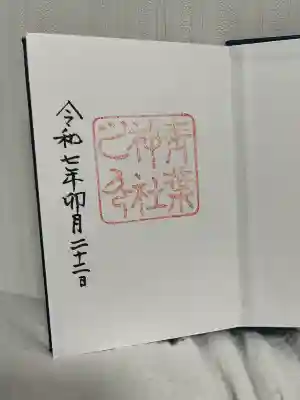 青葉
神社
令和七年卯月二十二日